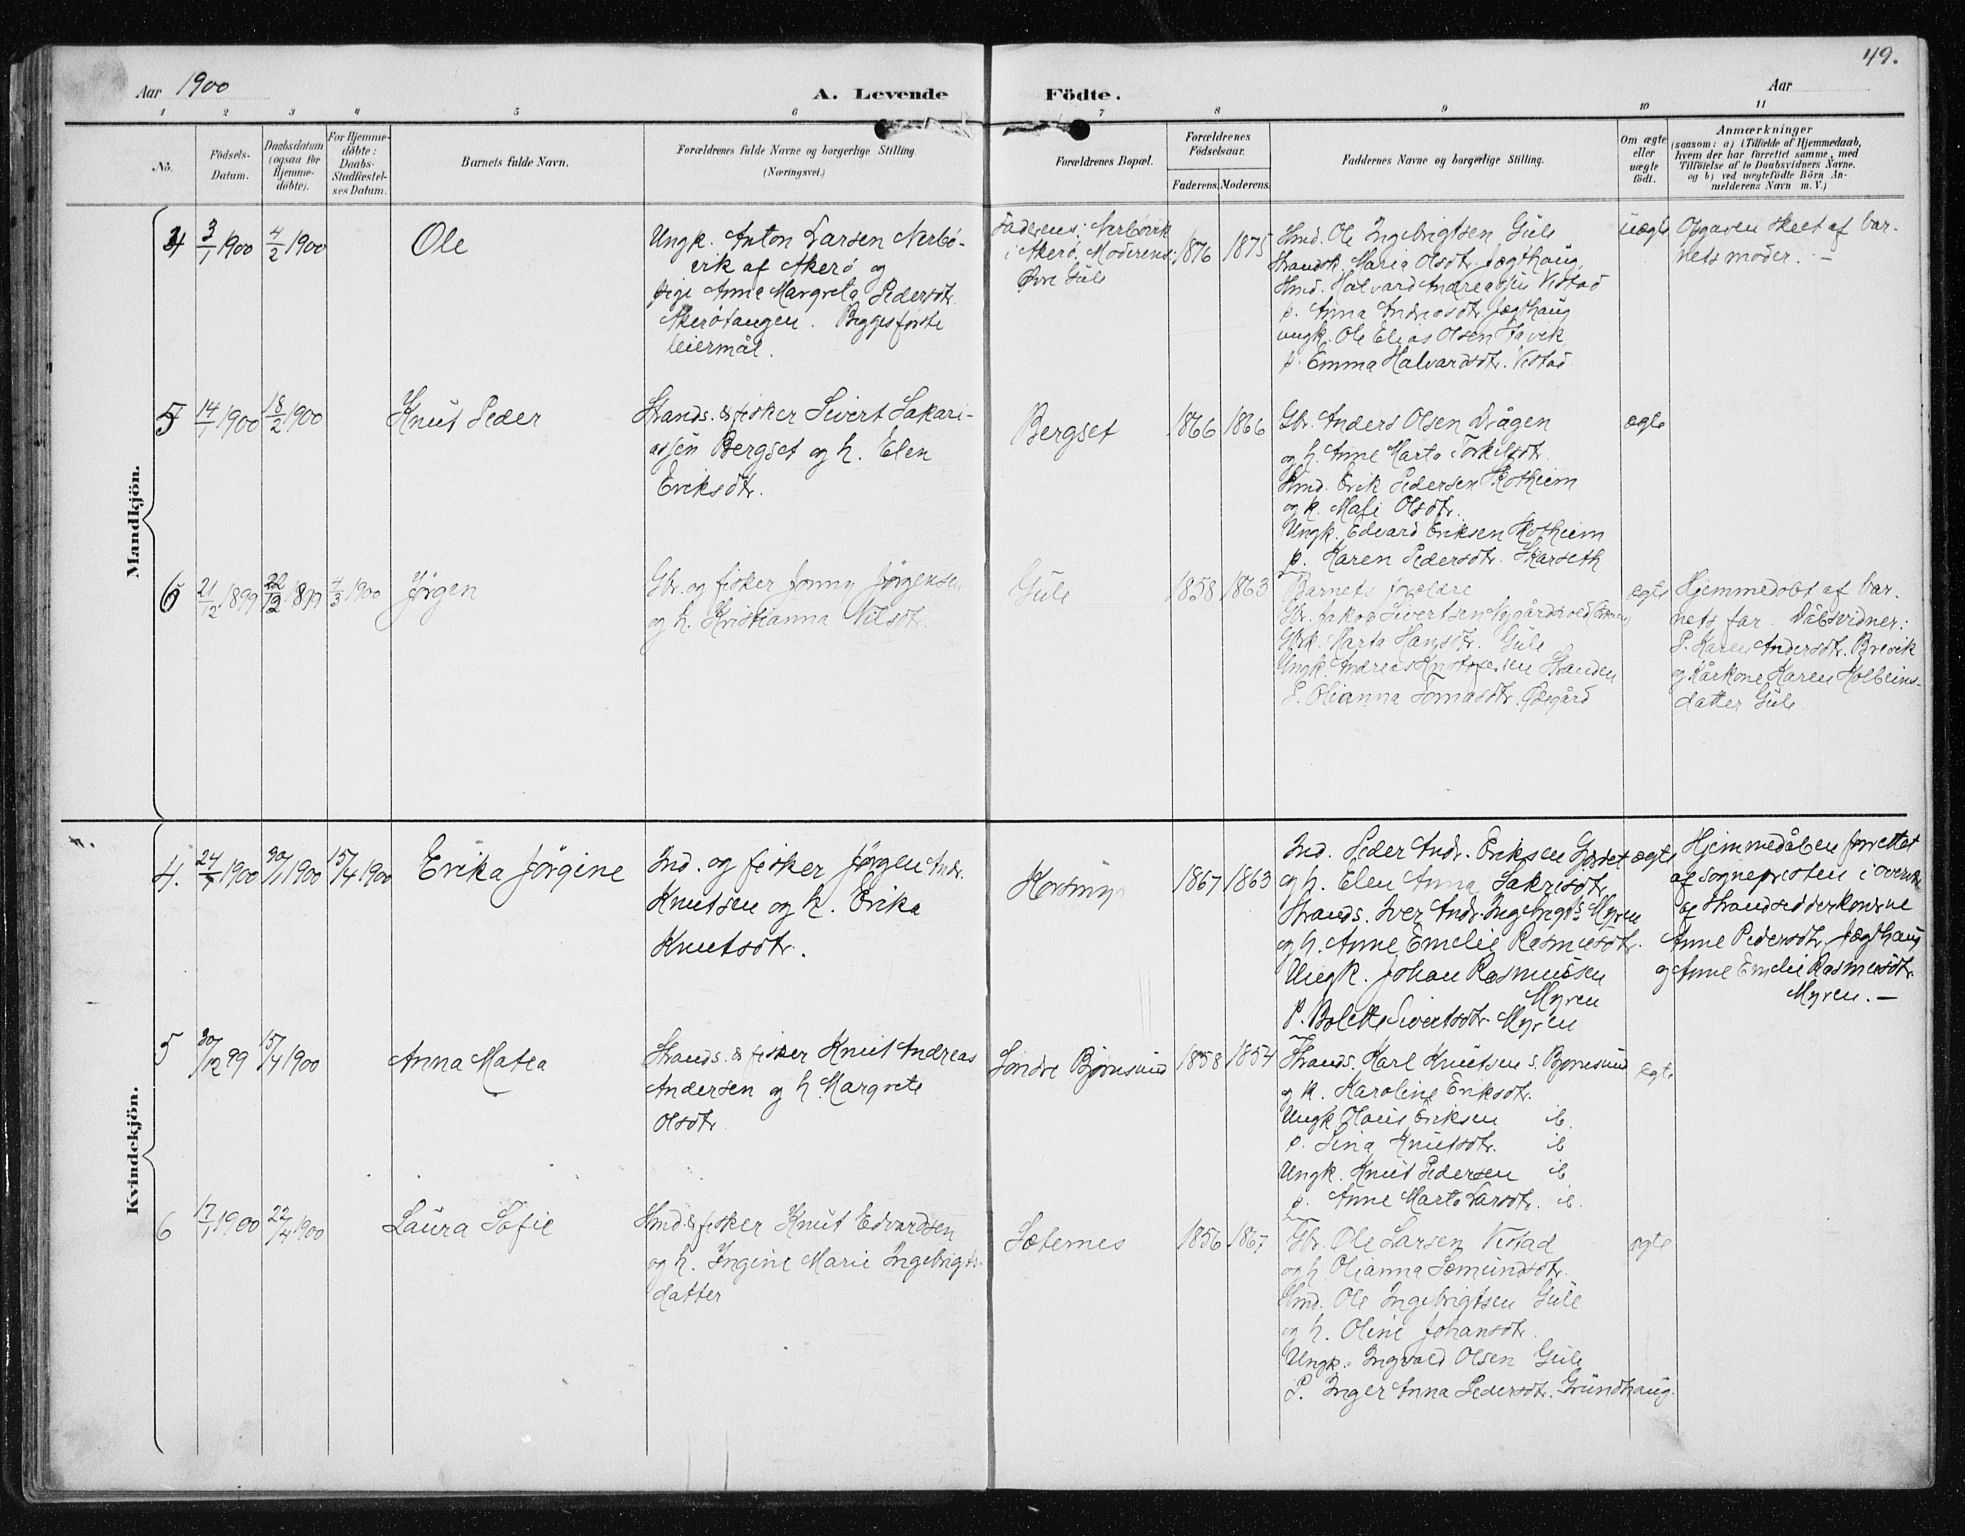 49.
Aar 1900
A. Levende Födte.
Aar
1 2 3 4 5 6 7 8 9 10 11
No.
Födsels-
Datum.
Daabsdatum
(ogsaa for
Hjemme-
døbte).
For Hjemme-
døbte:
Daabs-
Stadfæstel-
ses Datum.
Barnets fulde Navn.
Forældrenes fulde Navne og borgerlige Stilling.
(Næringsvei.)
Forældrenes Bopæl.
Forældrenes
Födselsaar.
Faderens. Moderens.
Faddernes Navne og borgerlige Stilling.
Om ægte
eller
uægte
födt.
Anmærkninger
(saasom: a) i Tilfælde af Hjemmedaab,
hvem der har forrettet samme, med
Tilföielse af to Daabsvidners Navne.
og b) ved uægtefödte Börn An-
melderens Navn m. V.)
Mandkjön.
4
3/1 1900
4/2 1900
Ole
Ungk. Anton Larsen Nerbø-
vik af Akerø og
pige Anne Margreta Pedersdtr.
Akerøtangen. Begges første
leiermål.
Faderens: Nerbøvik
i Akerø, Moderens:
Øvre Gule
1876
1875
Hmd. Ole Ingebrigtsen Gule
Strandsk. Maria Olsdtr. Jægthaug
Hmd. Halvard Andreassen Vestad
p. Anna Andreasdtr. Jægthaug
ungk. Ole Elias Olsen Havik
p. Emma Halvardsdtr. Vestad
uægte
Opgaven skeet af bar-
nets moder. —
5
14/1 1900
18/2 1900
Knut Peder
Strands. & fisker Sivert Sakari-
assen Bergset og h. Elen
Eriksdtr.
Bergset
1866
1866
Gbr. Anders Olsen Drågen
og h. Anne Marta Torkelsdtr.
Hmd. Erik Pedersen Rotheim
og k. Mali Olsdtr.
Ungk. Edvard Eriksen Rotheim
p. Karen Pedersdtr. Skarseth
ægte
6
21/12 1899
22/12 1899
4/3 1900
Jørgen
Gbr. og fisker Jonny Jørgensen
og h. Kristianna Nilsdtr.
Gule
1858
1863
Barnets forældre
Gbr. Jakob Sivertsen Nygårdsvold
Gbrk. Marta Hansdtr. Gule
Ungk. Andreas Kristofersen Stranden
P. Olianna Tomasdtr. Ødegård
ægte
Hjemmedøbt af bar-
nets far. Dåbsvidner:
P. Karen Andersdtr. Brevik
og Kårkone Karen Kolbeins-
datter Gule
Kvindekjön.
4.
24/1 1900
30/1 1900
15/4 1900
Erika Jörgine
Ind. og fisker Jørgen Andr.
Knutsen og h. Erika
Knutsdtr.
1867
1863
Ind. Peder Andr. Eriksen Gjerdet
og h. Elen Anna Sakrisdtr.
Strands. Iver Andr. Ingebrigts. Myren
og h. Anne Emelie Rasmusdtr.
Ungk. Johan Rasmussen
Myren
P. Bolette Sivertsdtr. Myren
ægte
Hjemmedåben forrettet
af sognepresten i overv.
af strandsidderkonerne
Anne Pedersdtr. Jægthaug
og Anne Emelie Rasmusdtr.
Myren. —
5
30/12 99
15/4 1900
Anna Matea
Strands. & fisker Knut Andreas
Andersen og h Margrete
Olsdtr.
Søndre Bjørnsund
1858
1854
Strands. Karl Knutsen s. Bjørnsund
og k. Karoline Eriksdtr.
Ungk Olaus Eriksen ib.
p. Sina Knutsdtr. ib
Ungk. Knut Pedersen ib
p. Anne Marta Larsdtr. ib.
ægte
6
17/1 1900
22/4 1900
Laura Sofie
Hmd. & fisker Knut Edvardsen
og h. Ingine Marie Ingebrigts-
datter
Sæternes
1856
1867
Gbr. Ole Larsen Vestad
og h. Olianna Sæmundsdtr.
Hmd. Ole Ingebrigtsen Gule
og h. Oline Johansdtr.
Ungk. Ingvald Olsen Gule
P. Inger Anna Pedersdtr. Grundhaug.
ægte